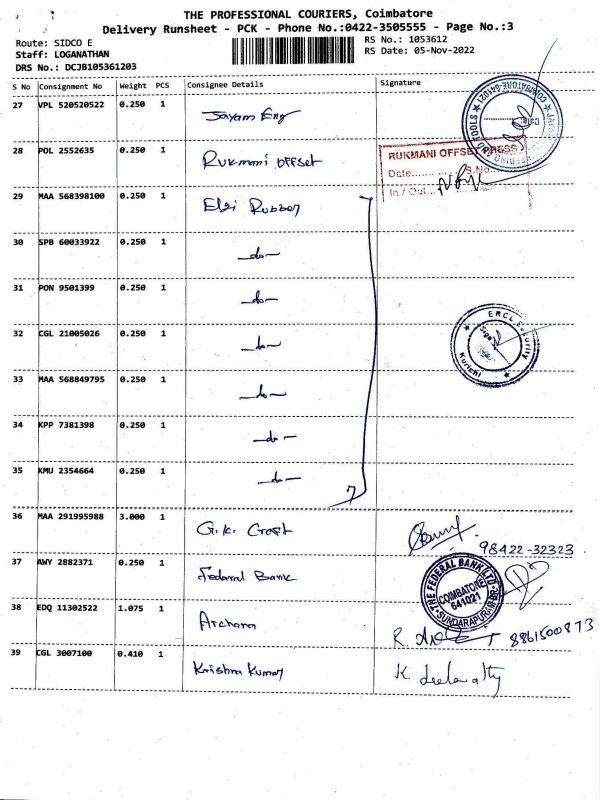 THE PROFESSIONAL COURIERS, Coimbatore
Delivery Runsheet - PCK - Phone No.:0422-3505555 - Page No.:3
Route: SIDCO E
RS No.: 1053612
Staff: LOGANATHAN
RS Date: 05-Nov-2022
DRS No.: DCJB105361203
S No Consignment No Weight PCS Consignee Details Signature
27 VPL 520520522 0.250 1 Jayam Eng
28 POL 2552635 0.250 1 Rukmani offset
RUKMANI OFFSET PRESS
Date........ S.No.
In / Out...
29 MAA 568398100 0.250 1 Elgi Rubber
30 SPB 60033922 0.250 1 -do-
31 PON 9501399 0.250 1 -do-
32 CGL 21005026 0.250 1 -do-
ERCL Security
Sign
Kurichi
33 MAA 568849795 0.250 1 -do-
34 KPP 7381398 0.250 1 -do-
35 KMU 2354664 0.250 1 -do-
7
36 MAA 291995988 3.000 1 G.K. Craft
98422-32323
37 AWY 2882371 0.250 1 Federal Bank
THE FEDERAL BANK LTD.
COIMBATORE
641021
SUNDARAPURAM BR.
38 EDQ 11302522 1.075 1 Archana
8861500873
39 CGL 3007100 0.410 1 Krishna Kumar
K